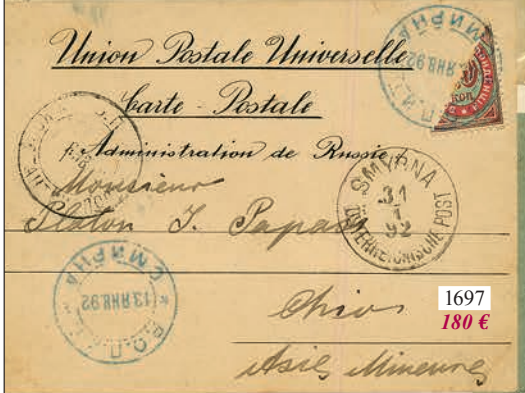 Union Postale Universelle
Carte-Postale
(Administration de Russie)
Monsieur
Platon J. Papa
Chios
Asie Mineure
СМИРНА
ЯНВ.92
Р.О.П.И.Т.
КОП.
SMYRNA
31
1
92
OESTERREICHISCHE POST
СМИРНА
13 ЯНВ.92
Р.О.П.И.Т.
1697
180 €